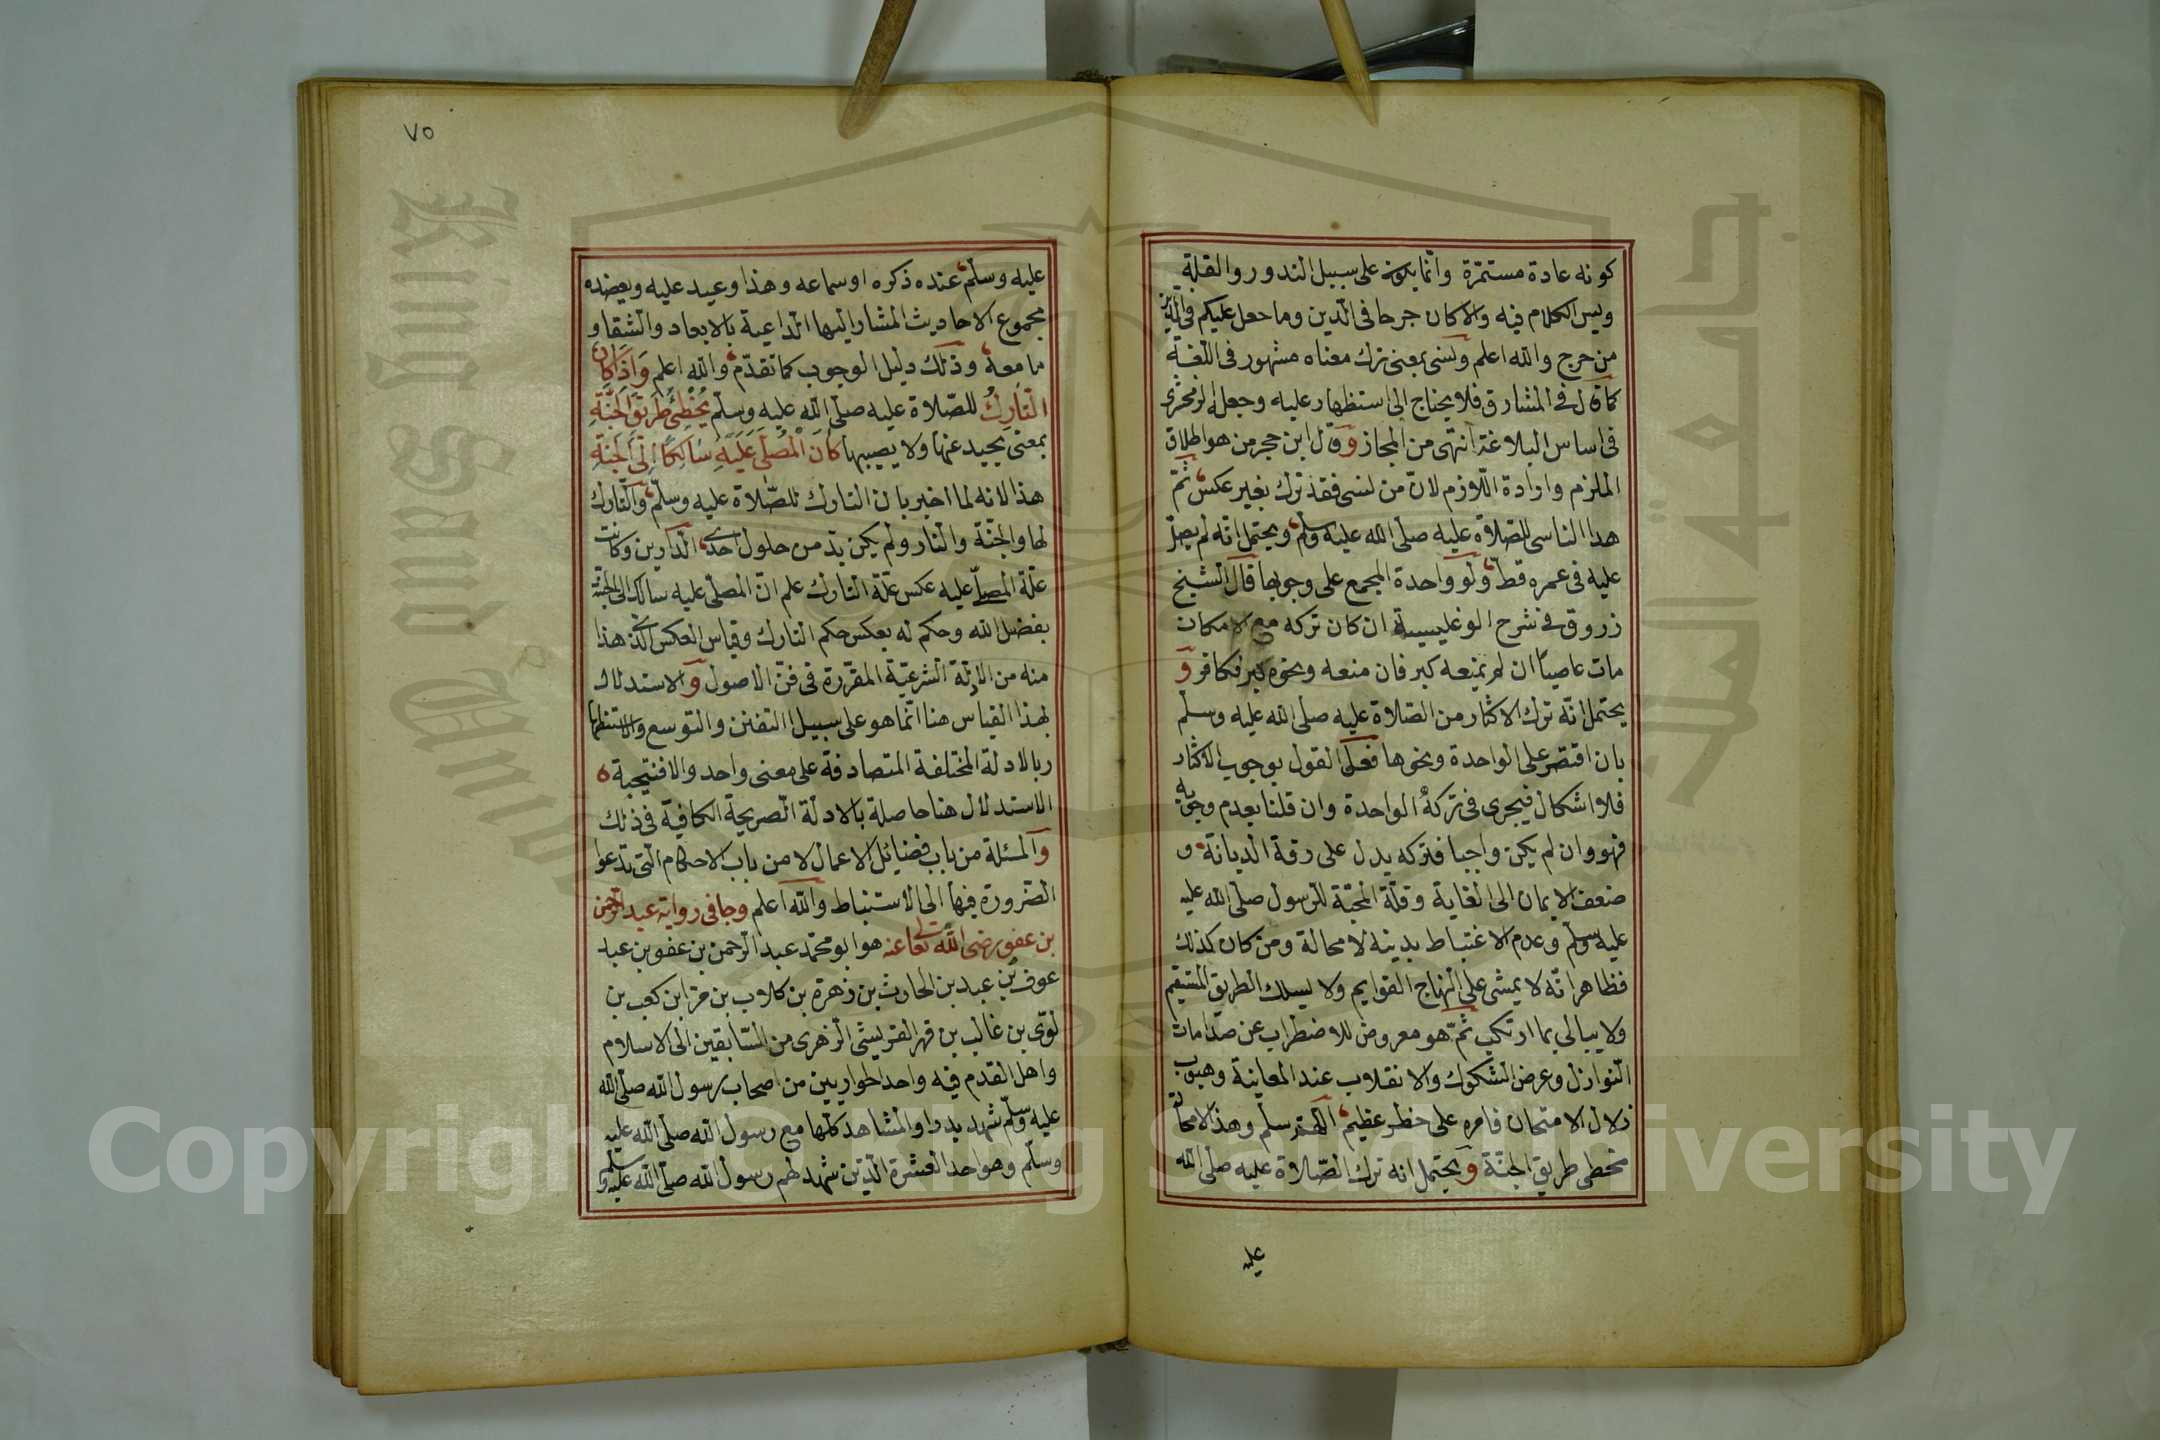 كونه عادة مستمرّة وانّما يكون على سبيل الندور والقلة
وليس الكلام فيه والا كان حرجا فى الدين وما جعل عليكم فى الدين
من حرج والله اعلم ونسى بمعنى ترك معناه مشهور فى اللغة
كما قال فى المشارق فلا يحتاج الى استظهار عليه وجعله الزمخشرى
فى اساس البلاغة انتهى من المجاز وقال ابن حجر من هو اطلاق
الملزم وارادة اللازم لانّ من نسى فقد ترك بغير عكس ثمّ
هذا الناسى للصلاة عليه صلى الله عليه وسلم ويحتمل انّه لم يصلّ
عليه فى عمره قطّ ولو واحدة المجمع على وجوبها قال الشيخ
زروق فى شرح الوغليسية ان كان تركه مع الامكان
مات عاصيا ان لم يمنعه كبر فان منعه ونحوه كبر فكافر و
يحتمل انّه ترك الاكثار من الصّلاة عليه صلى الله عليه وسلّم
بان اقتصر على الواحدة ونحوها فعلى القول بوجوب الاكثار
فلا اشكال فيجرى فى تركه الواحدة وان قلنا بعدم وجوبه
فهو وان لم يكن واجبا فتركه يدل على رقة الديانة و
ضعف الايمان الى الغاية وقلّة المحبّة للرسول صلّى الله عليه
عليه وسلم وعدم الاغتباط بدينه لا محالة ومن كان كذلك
فظاهر انّه لا يمشى على النهاج القوايم ولا يسلك الطريق المستقيم
ولا يبالى بما ارتكب ثمّ هو معروض للاضطراب عن صدامات
النّوازل وعرض الشكوك والانقلاب عند المعاينة وهبوب
زلازل الامتحان فامره على خطر عظيم اللهمّ سلم وهذا الامحالة
مخطى طريق الجنّة ويحتمل انه ترك الصّلاة عليه صلّى الله
عليه
٧٥
عليه وسلّم عنده ذكره او سماعه وهذا وعيد عليه ويعضده
مجموع الاحاديث المشار اليها الدّاعية بالابعاد والشّقاو
ما معه وذلك دليل الوجوب كما تقدّم والله اعلم وَاذَا كَان
التَّارِكُ للصّلاة عليه صلّى الله عليه وسلّم يُخْطِئُ طَرِيقَ الجَنَّةِ
بمعنى يحيد عنها ولا يصيبها كَانَ الْمُصَلِّى عَلَيْهِ سَالِكًا اِلَى الْجَنَّةِ
هذا لانه لما اخبر بان التارك للصّلاة عليه وسلّم والتّارك
لها والجنّة والنار ولم يكن بدّ من حلول احدى الدّارين وكانت
علّة المصلّى عليه عكس علّة التارك علم انّ المصلّى عليه سالك الى الجنّة
بفضل الله وحكم له بعكس حكم التارك وقياس العكس الّذى هذا
منه من الادلّة الشّرعيّة المقرّرة فى فنّ الاصول والاستدلال
بهذا القياس هنا انّما هو على سبيل التفنن والتوسع والاستظها
ر بالادلة المختلفة المتصادفة على معنى واحد والا فنتيجة
الاستدلال هنا حاصلة بالادلّة الصّريحة الكافية فى ذلك
والمسئلة من باب فضائل الاعمال لا من باب الاحكام الّتى تدعوا
الضّرورة فيها الى الاستنباط والله اعلم وجا فى رواية عبد الرّحمن
بن عوف رضى الله تعالى عنه هو ابو محمّد عبد الرّحمن بن عفو بن عبد
عوف بن عبد بن الحارث بن زهرة بن كلاب بن مرّة ابن كعب بن
لوّى بن غالب بن فهر القريشى الزّهرى من السّابقين الى الاسلام
واهل القدم فيه واحد الحواريين من اصحاب رسول الله صلّى الله
عليه وسلّم شهد بدرا والمشاهد كلّها مع رسول الله صلّى الله عليه
وسلّم وهو احد العشرة الّذين شهد لهم رسول الله صلّى الله عليه وسلم
Copyright © King Saud University